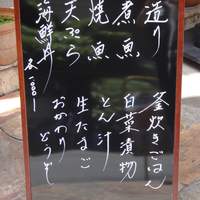 造り
煮魚
焼魚
天ぷら
海鮮丼
釜炊きごはん
白菜漬物
とん汁
生たまご
おかわり
どうぞ